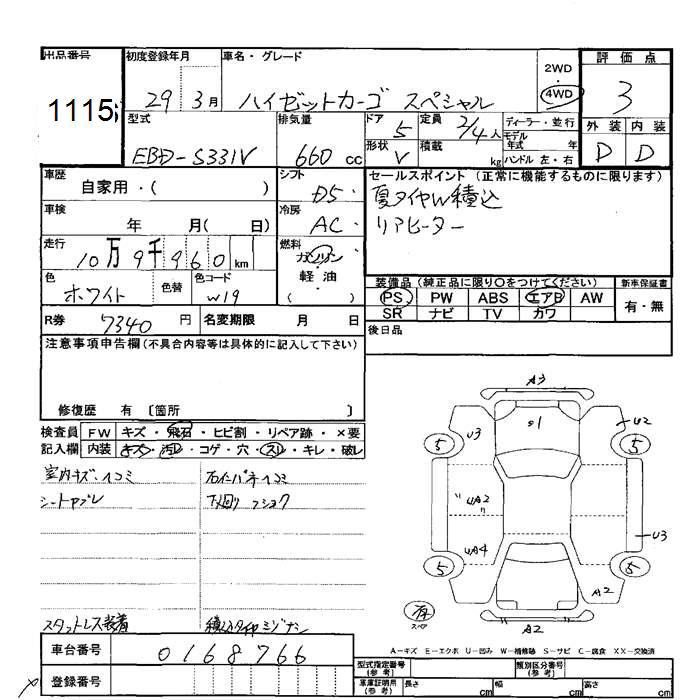 出品番号 1115
初度登録年月 29 3月
車名・グレード ハイゼットカーゴ スペシャル
2WD
4WD
評価点 3
外装 内装
D D
型式 EBD-S331V
排気量 660 cc
ドア 5
定員 2/4人
ディーラー・並行
モデル年式 年
形状 V
積載 kg
ハンドル 左・右
車歴 自家用・( )
シフト D5
セールスポイント (正常に機能するものに限ります)
夏タイヤW積込
リアヒーター
車検 年 月( 日)
冷房 AC
走行 10万9千960km
燃料 ガソリン・軽油・( )
色 ホワイト
色替
色コード W19
装備品 (純正品に限り○をつけてください)
新車保証書
PS PW ABS エアB AW
SR ナビ TV カワ
有・無
R券 7340円
名変期限 月 日
後日品
注意事項申告欄(不具合内容等は具体的に記入して下さい)
修復歴 有 〔箇所 〕
検査員 FW キズ・飛石・ヒビ割・リペア跡・×要
記入欄 内装 キズ・汚レ・コゲ・穴・スレ・キレ・破レ
室内キズ・ヘコミ
シートヤブレ
下廻り フショク
スタットレス装着
積込タイヤミゾナシ
A3
U3
U2
5
5
UA2
UA4
U3
5
5
A2
有
スペア
A2
A-キズ E-エクボ U-凹み W-補修跡 S-サビ C-腐食 XX-交換済
車台番号 0168766
登録番号
型式指定番号(参考)
類別区分番号(参考)
車庫証明用(参考) 長さ cm 幅 cm 高さ cm